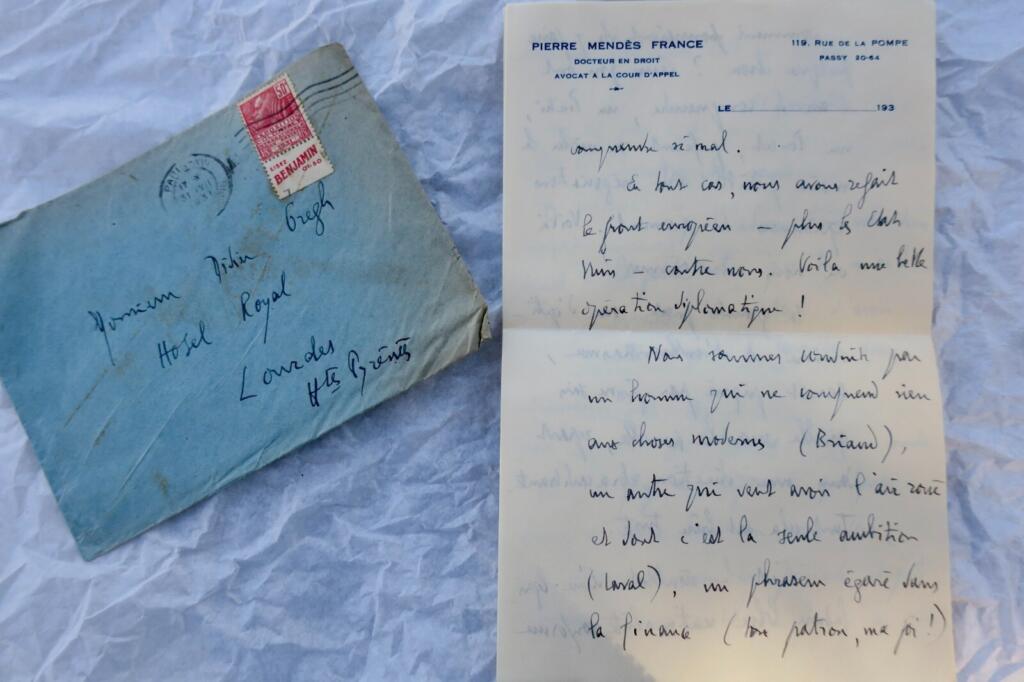 50c
LISEZ
BENJAMIN
0f.60
Gregh
Monsieur Didier
Hôtel Royal
Lourdes
Htes Pyrénées
PIERRE MENDÈS FRANCE
DOCTEUR EN DROIT
AVOCAT A LA COUR D'APPEL
119, RUE DE LA POMPE
PASSY 20-64
LE 193
comprendre si mal.
En tout cas, nous avons refait
le front européen — plus les Etats
Unis — contre nous. Voilà une belle
opération diplomatique !
Nous sommes conduits par
un homme qui ne comprend rien
aux choses modernes (Briand),
un autre qui veut avoir l'air roué
et dont c'est la seule ambition
(Laval), un phraseur égaré dans
la finance (ton patron, ma foi !)